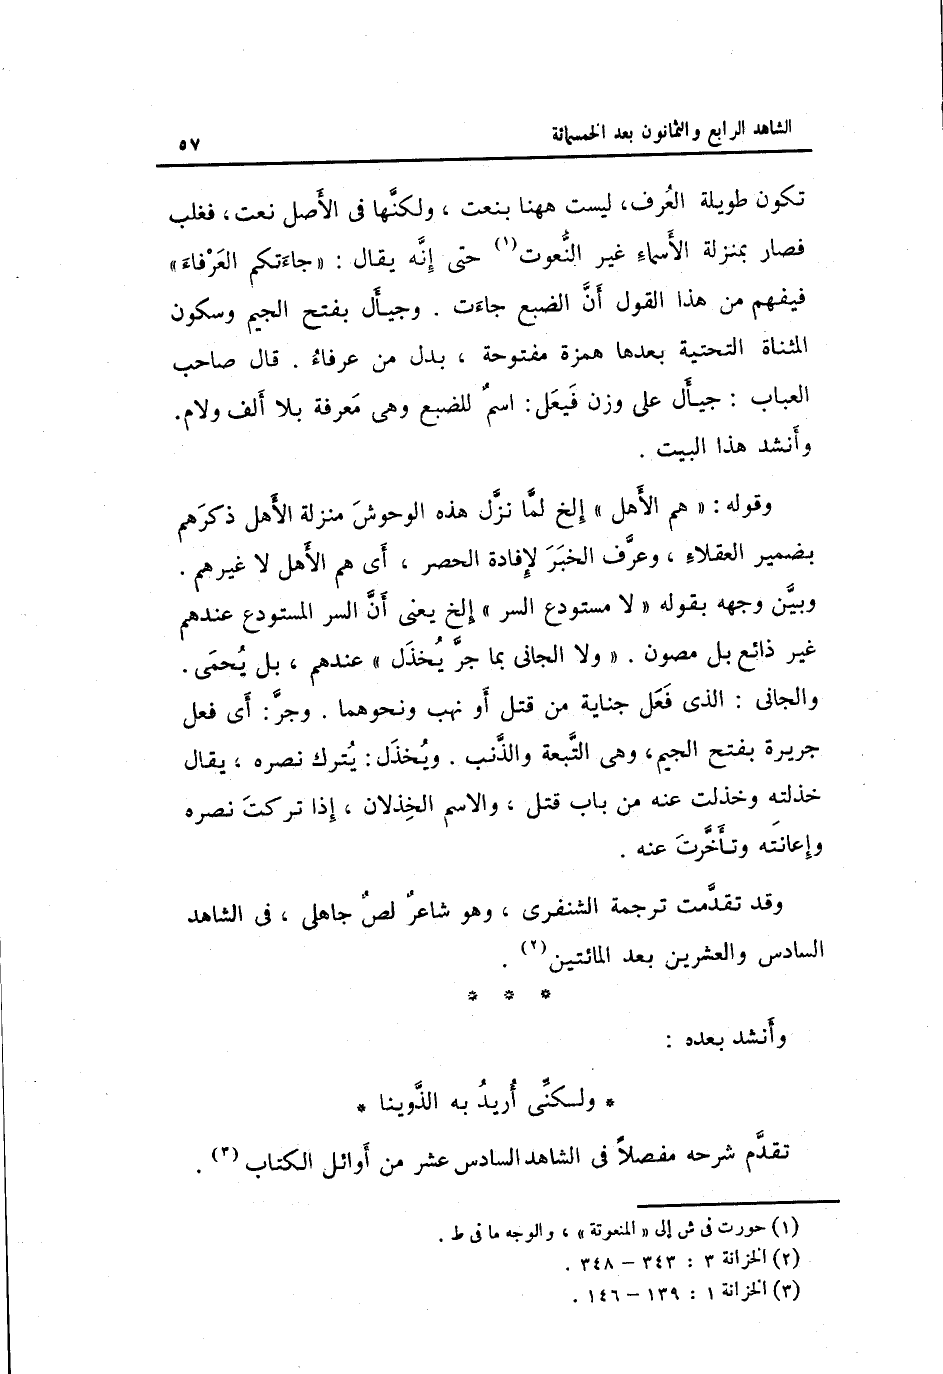 الشاهد الرابع والثمانون بعد الخمسمائة ٥٧
تكون طويلة العُرف، ليست ههنا بنعت ، ولكنَّها فى الأَصل نعت، فغلب
فصار بمنزلة الأَسماءِ غير النُّعوت(١) حتى إنَّه يقال : «جاءَتكم العَرْفاءَ»
فيفهم من هذا القول أَنَّ الضبع جاءَت . وجيأَل بفتح الجيم وسكون
المثناة التحتية بعدها همزة مفتوحة ، بدل من عرفاءُ . قال صاحب
العباب : جيأَل على وزن فَيعَل: اسمٌ للضبع وهى مَعرفة بلا أَلف ولام.
وأَنشد هذا البيت .
وقوله: « هم الأَهل » إلخ لمَّا نزَّل هذه الوحوشَ منزلة الأَهل ذكرَهم
بضمير العقلاءِ ، وعرَّف الخبَرَ لإفادة الحصر ، أَى هم الأَهل لا غيرهم .
وبيَّن وجهه بقوله « لا مستودع السر » إلخ يعنى أَنَّ السر المستودع عندهم
غير ذائع بل مصون . « ولا الجانى بما جرَّ يُخذَل » عندهم ، بل يُحمَى .
والجانى : الذى فَعَل جناية من قتل أَو نهب ونحوهما . وجرَّ: أَى فعل
جريرة بفتح الجيم، وهى التَّبعة والذَّنب . ويُخذَل: يُترك نصره ، يقال
خذلته وخذلت عنه من باب قتل ، والاسم الخِذلان ، إذا تركتَ نصره
وإعانَته وتأَخَّرتَ عنه .
وقد تقدَّمت ترجمة الشنفرى ، وهو شاعرٌ لصٌ جاهلى ، فى الشاهد
السادس والعشرين بعد المائتين(٢) .
* * *
وأَنشد بعده :
* ولكنِّى أُريدُ به الذَّوينا *
تقدَّم شرحه مفصلاً فى الشاهد السادس عشر من أَوائل الكتاب (٣) .
(١) حورت فى ش إلى « المنعوتة » ، والوجه ما فى ط .
(٢) الخزانة ٣ : ٣٤٣ – ٣٤٨ .
(٣) الخزانة ١ : ١٣٩ – ١٤٦ .